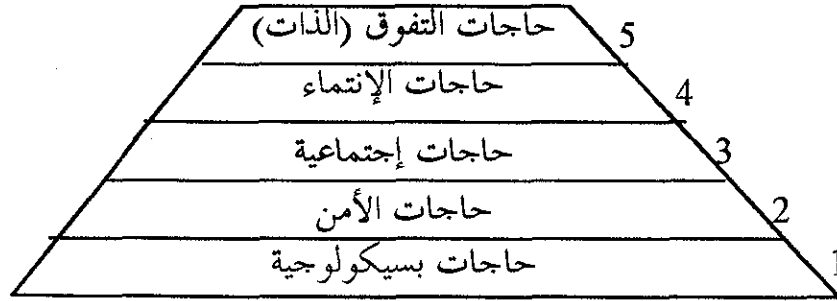 حاجات التفوق (الذات) 5
حاجات الإنتماء 4
حاجات إجتماعية 3
حاجات الأمن 2
حاجات بسيكولوجية 1